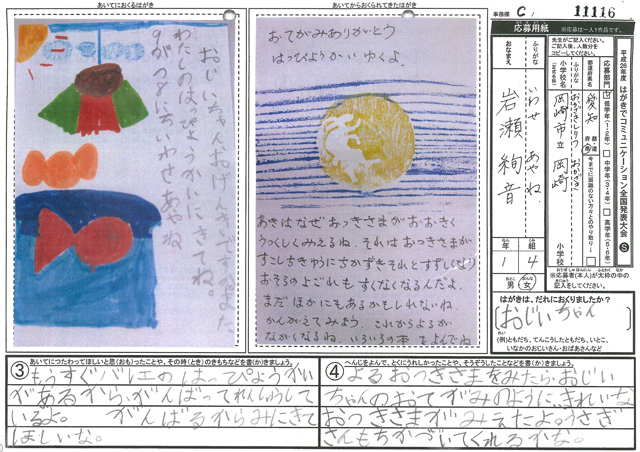 あいてにおくるはがき
おじいちゃんおげんきですか。また
わたしのはっぴょうかいにきてね。
9がつ
いわせあやね
あいてからおくられてきたはがき
おてがみありがとう
はっぴょうかいゆくよ。
あきはなぜおつきさまがおおきく
うつくしくみえるね。それはおつきさまが
すこしちきゅうにちかずきそれとすずしくなり
おそらのよごれもすくなくなるんだよ。
まだほかにもあるかもしれないね
かんがえてみよう。これからよるが
ながくなるねいろいろの本をよんでね
事務欄 C 11116
平成26年度 はがきでコミュニケーション全国発表大会 S
応募用紙
※応募は一人1作品です。
先生がご記入ください。
ご記入後、人数分を
コピーしてください。
応募部門
低学年(1・2年)
中学年(3・4年)
高学年(5・6年)
都道府県名
愛知
都道府県
今までに面識のない方々とのやり取り…
ふりがな
おかざきしりつ おかざき
小学校名
(正式名称)
岡崎市立 岡崎
小学校
ふりがな
いわせ あやね
おなまえ
岩瀬 絢音
年 組
1 4
おとこ おんな
男 女
※応募者(本人)が太枠の中の
記入をしてください。
はがきは、だれにおくりましたか?
おじいちゃん
(例)ともだち、てんこうしたともだち、いとこ、
いなかのおじいさん・おばあさんなど
③ あいてにつたわってほしいと思(おも)ったことや、その時(とき)のきもちなどを書(か)きましょう。
もうすぐバレエのはっぴょうかい
があるから、がんばってれんしゅうして
いるよ。 がんばるからみにきて
ほしいな。
④ へんじをよんで、とくにうれしかったことや、そうぞうしたことなどを書(か)きましょう。
よるおつきさまをみたら、おじい
ちゃんのおてがみのように、きれいな
おつきさまがみえたよ。うさぎ
さんもちかづいてくれるかな。